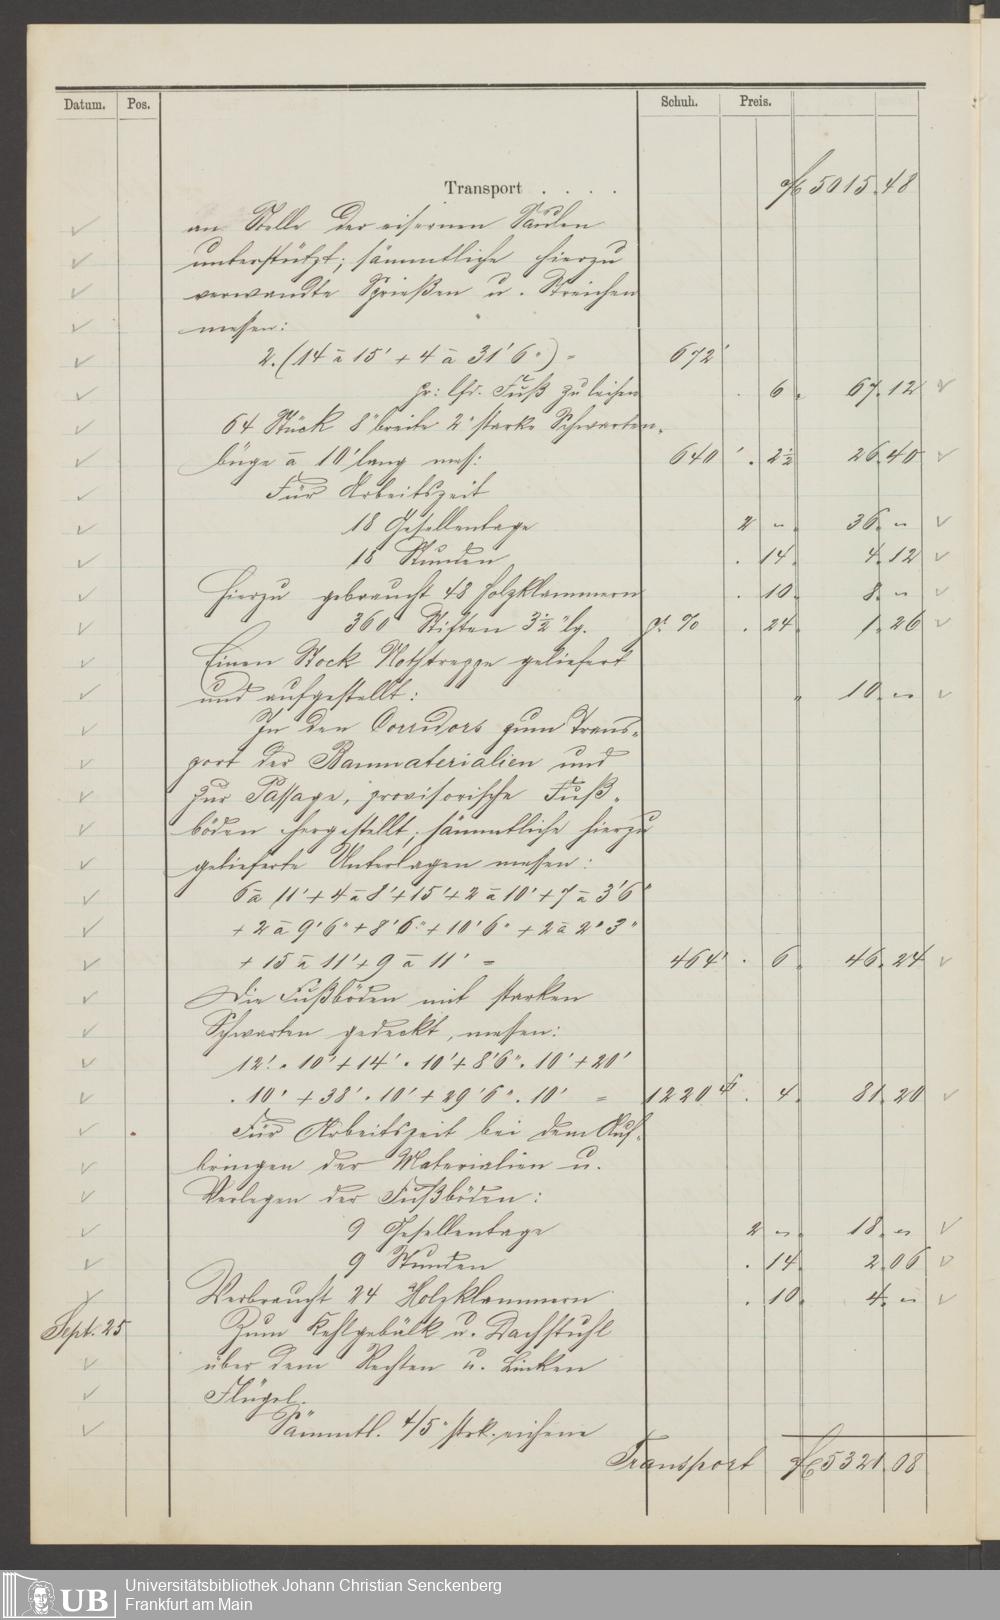 Datum. Pos. Schuh. Preis.
Transport . . . . f 5015. 48
an Stelle der eisernen Säulen
unterstützt; sämmtliche hierzu
verwandte Sprießen u. Streichen
messen:
2.(14 à 15' + 4 à 31' 6") = 672'
pr: lfd. Fuß zu leihen . 6. 67. 12
64 Stück 8" breite 2" starke Schwarten-
büge à 10' lang mes: 640' . 2 1/2 26. 40
Für Arbeitszeit
18 Gesellentage 2 „. 36. „
18 Stunden . 14. 4. 12
Hierzu gebraucht 48 Holzklammern . 10. 8. „
360 Stiften 3 1/2" lg. pr % . 24. 1. 26
Einen Stock Nothtreppe geliefert
und aufgestellt: „ 10. „
In den Corridors zum Trans-
port der Baumaterialien und
zur Passage, provisorische Fuß-
böden hergestellt; sämmtliche hierzu
gelieferte Unterlagen messen:
6 à 11' + 4 à 8' + 15' + 2 à 10' + 7 à 3' 6"
+ 2 à 9' 6" + 8' 6" + 10' 6" + 2 à 2" 3"
+ 15 à 11' + 9 à 11' = 464' . 6. 46. 24
Die Fußböden mit starken
Schwarten gedeckt, messen:
12' . 10' + 14' . 10' + 8' 6" . 10' + 20'
. 10' + 38' . 10' + 29' 6" . 10' = 1220 . 4. 81. 20
Für Arbeitszeit bei dem Auf-
bringen der Materialien u.
Verlegen der Fußböden:
9 Gesellentage 2 „. 18. „
9 Stunden . 14. 2. 06
Verbraucht 24 Holzklammern . 10. 4. „
Sept. 25 Zum Kehlgebälk u. Dachstuhl
über dem Rechten u. Linken
Flügel.
Sämmtl. 4/5" strk. eichene
Transport f 5321. 08
UB Universitätsbibliothek Johann Christian Senckenberg
Frankfurt am Main